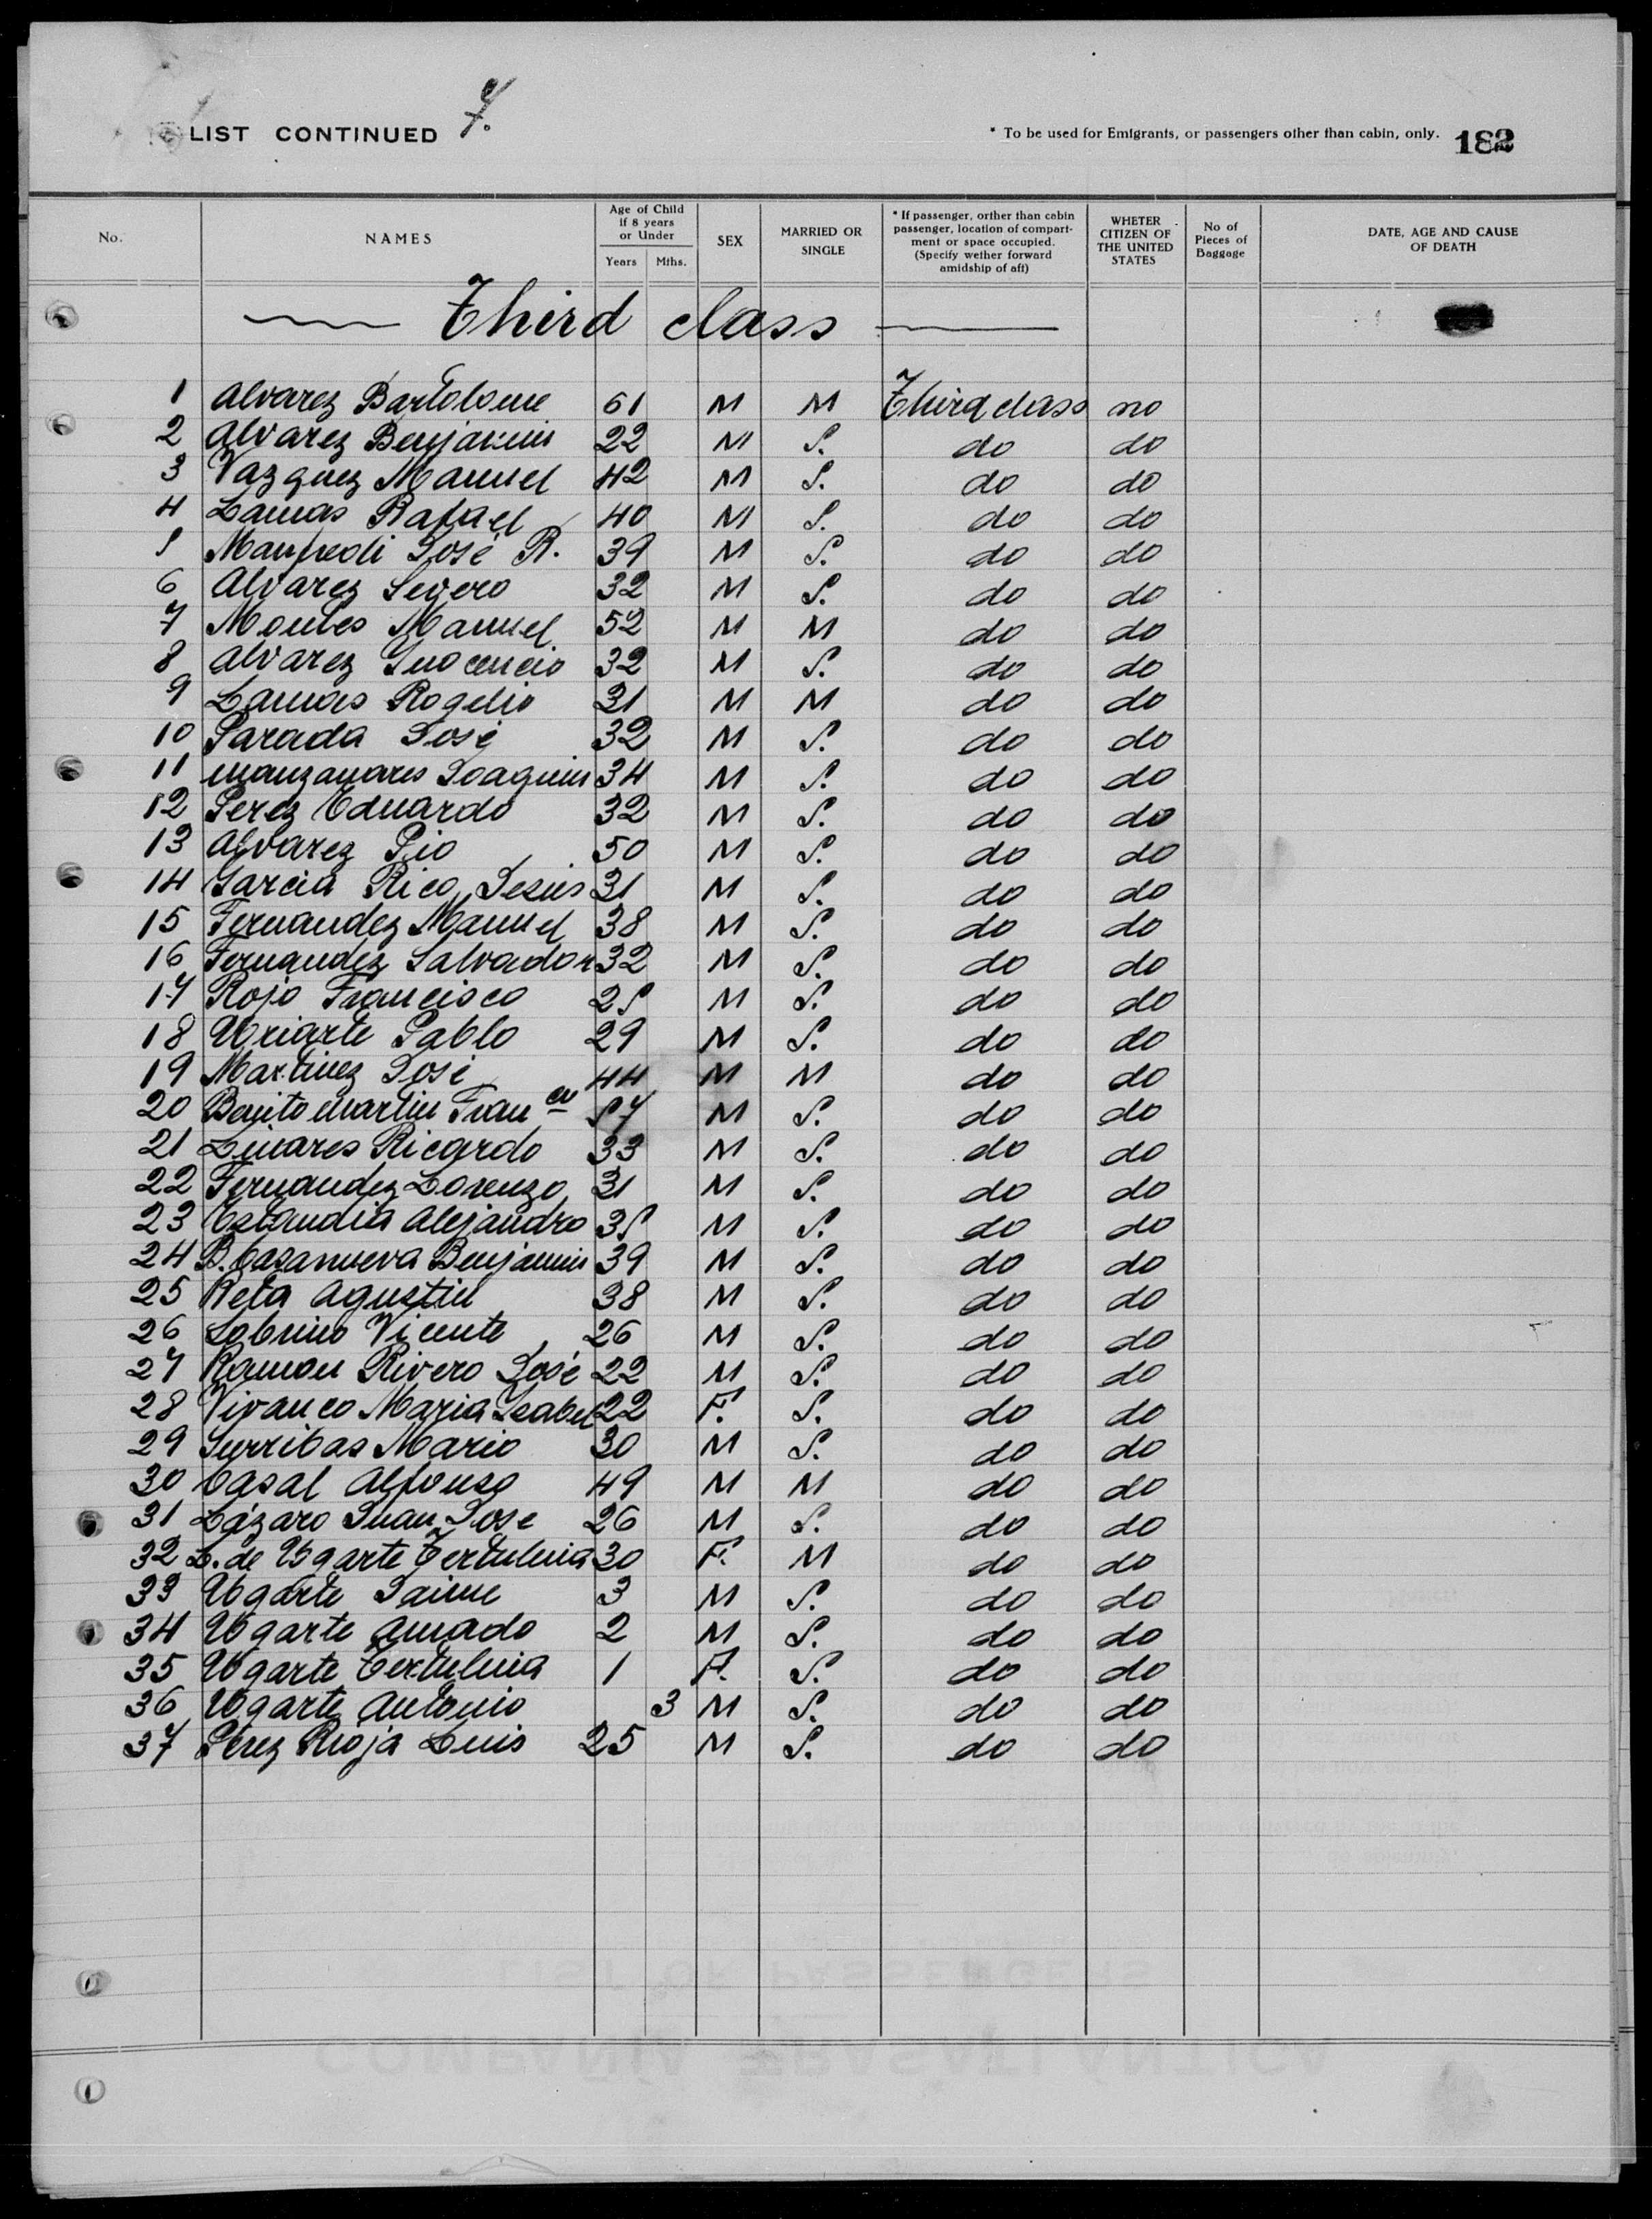 LIST CONTINUED 7.
* To be used for Emigrants, or passengers other than cabin, only. 182
No. NAMES Age of Child if 8 years or Under Years Mths. SEX MARRIED OR SINGLE * If passenger, orther than cabin passenger, location of compartment or space occupied. (Specify wether forward amidship of aft) WHETER CITIZEN OF THE UNITED STATES No of Pieces of Baggage DATE, AGE AND CAUSE OF DEATH
Third class
1 Alvarez Bartolome 61 M M Third class no
2 Alvarez Benjamin 22 M S. do do
3 Vazquez Manuel 42 M S. do do
4 Lamas Rafael 40 M S. do do
5 Manfredi José R. 39 M S. do do
6 Alvarez Severo 32 M S. do do
7 Montes Manuel 52 M M do do
8 Alvarez Inocencio 32 M S. do do
9 Lamas Rogelio 31 M M do do
10 Parada José 32 M S. do do
11 Manzanares Joaquin 34 M S. do do
12 Perez Eduardo 32 M S. do do
13 Alvarez Pio 50 M S. do do
14 Garcia Rico, Jesús 31 M S. do do
15 Fernandez Manuel 38 M S. do do
16 Fernandez Salvador 32 M S. do do
17 Rojo Francisco 25 M S. do do
18 Uriarte Pablo 29 M S. do do
19 Martinez José 44 M M do do
20 Benito Martin Fran co 57 M S. do do
21 Linares Ricardo 33 M S. do do
22 Fernandez Lorenzo 31 M S. do do
23 Estandia Alejandro 35 M S. do do
24 B. Casanueva Benjamin 39 M S. do do
25 Reta Agustin 38 M S. do do
26 Sobrino Vicente 26 M S. do do
27 Ramon Rivero José 22 M S. do do
28 Vivanco Maria Isabel 22 F. S. do do
29 Surribas Mario 30 M S. do do
30 Casal Alfonso 49 M M do do
31 Lázaro Juan Jose 26 M S. do do
32 L. de Ugarte Tertulina 30 F. M do do
33 Ugarte Jaime 3 M S. do do
34 Ugarte Amado 2 M S. do do
35 Ugarte Tertulina 1 F. S. do do
36 Ugarte Antonio 3 M S. do do
37 Perez Rioja Luis 25 M S. do do